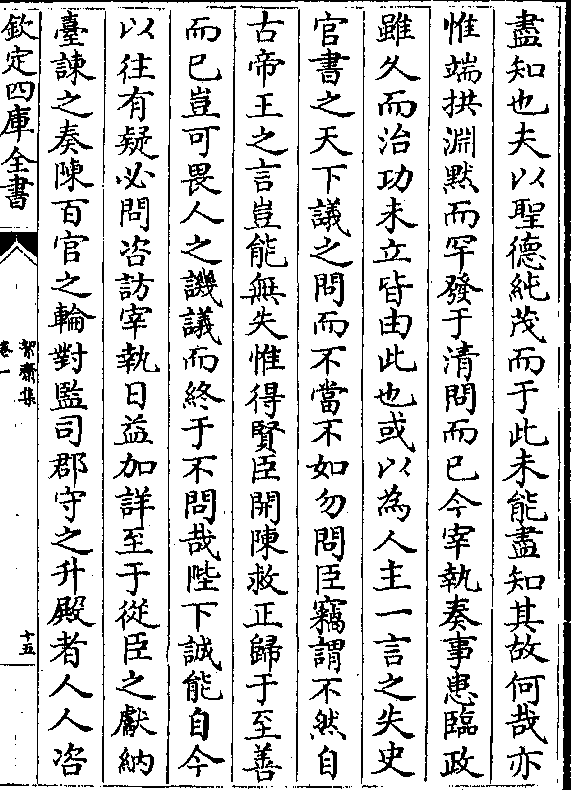 盡知也夫以聖德純茂而于此未能盡知其故何哉亦
惟端拱淵黙而罕發于清問而已今宰執奏事恵臨政
雖久而治功未立皆由此也或以為人主一言之失史
官書之天下議之問而不當不如勿問臣竊謂不然自
古帝王之言豈能無失惟得賢臣開陳救正歸于至善
而已豈可畏人之譏議而終于不問哉陛下誠能自今
以往有疑必問咨訪宰執日益加詳至于從臣之獻納
臺諫之奏陳百官之輪對監司郡守之升殿者人人咨
欽定四庫全書
絜齋集
卷一
十五